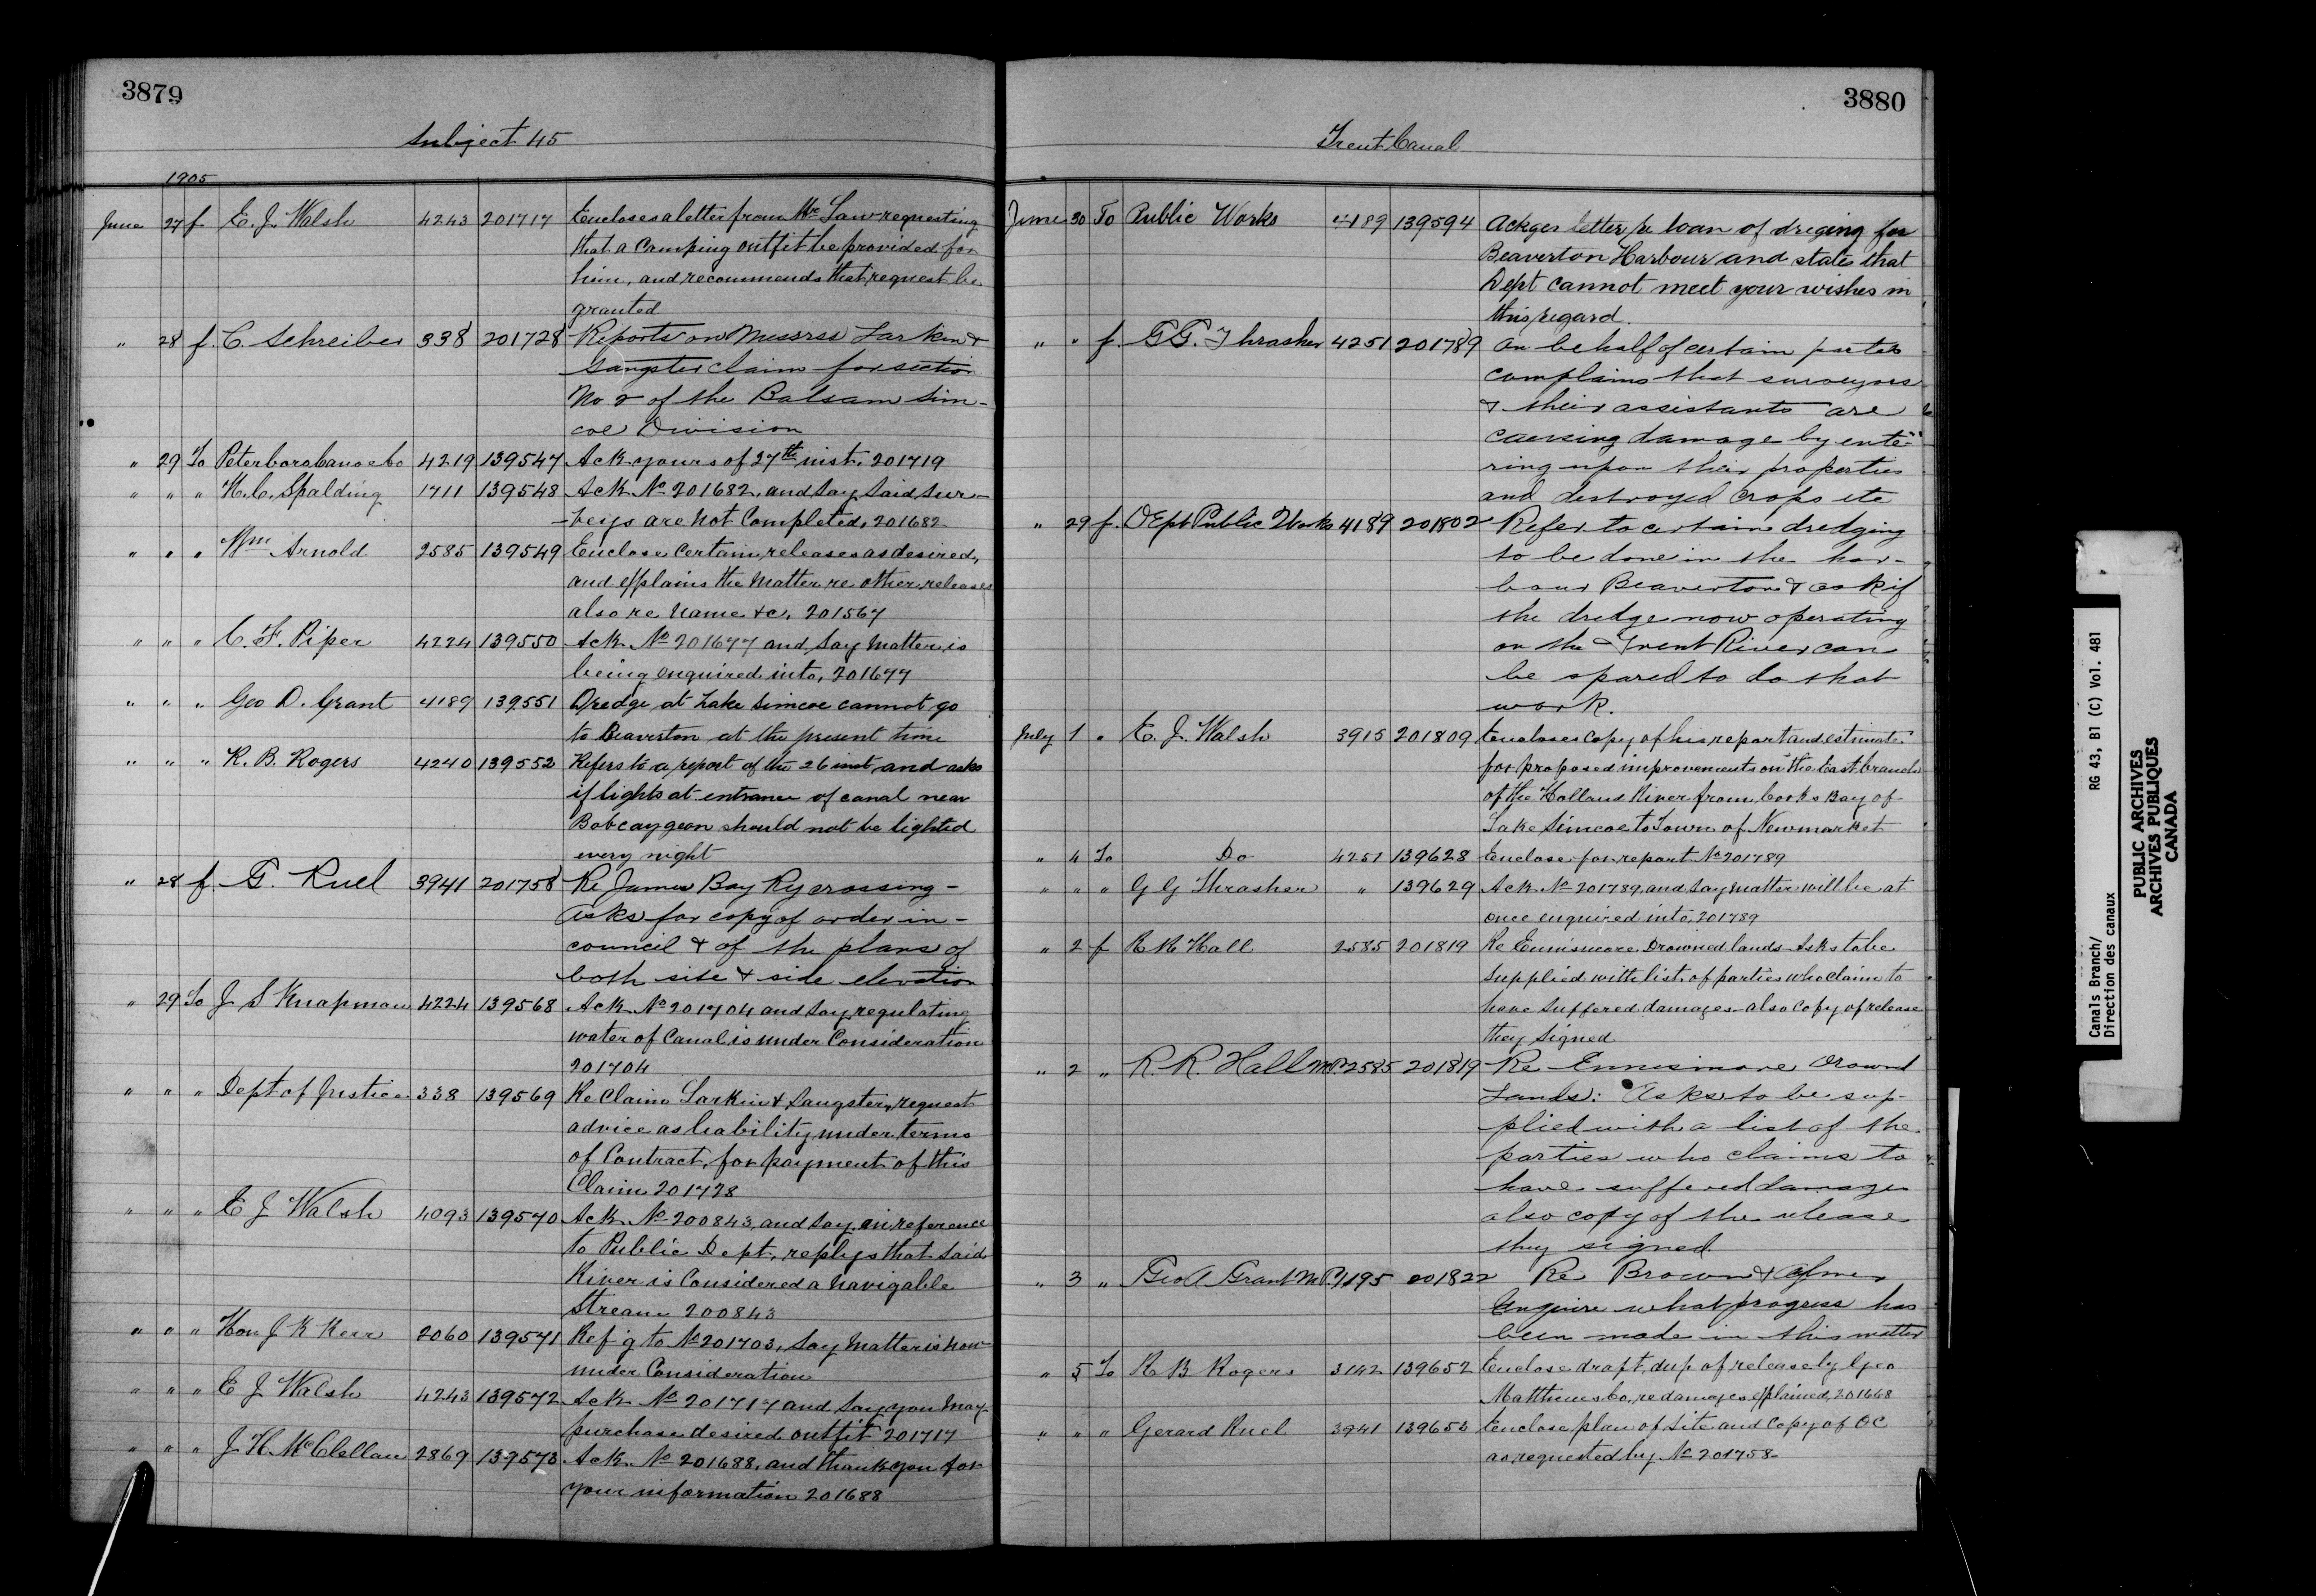 3879
Subject 45
1905
June 27 f. E. J. Walsh 4243 201717 Encloses a letter from Mr Law requesting
that a camping outfit be provided for
him, and recommends that request be
granted
" 28 f. C. Schreiber 338 201728 Reports on Messrss Larkin &
Sangster claim for section
No 2 of the Balsam Sim-
coe Division
" 29 To Peterboro Canoe Co 4219 139547 Ack yours of 27th inst. 201719
" " " H. C. Spalding 1711 139548 Ack No 201682, and say said sur-
-veys are not Completed, 201682
" " " Wm Arnold 2585 139549 Enclose certain releases as desired,
and explains the matter re other releases
also re name &c, 201567
" " " C. F. Piper 4224 139550 Ack No 201677 and say matter is
being enquired into, 201677
" " " Geo D. Grant 4189 139551 Dredge at Lake Simcoe cannot go
to Beaverton at the present time
" " " R. B. Rogers 4240 139552 Refers to a report of the 26 inst and asks
if lights at entrance of canal near
Bobcaygeon should not be lighted
every night
" 28 f. G. Ruel 3941 201758 Re James Bay Ry crossing -
asks for copy of order in -
council & of the plans of
both site & side elevation
" 29 To J S Knapman 4224 139568 Ack No 201704 and say regulating
water of Canal is under Consideration
201704
" " " Dept of Justice 338 139569 Re Claim Larkin & Sangster, request
advice as liability under terms
of Contract, for payment of this
Claim 201728
" " " E J Walsh 4093 139570 Ack No 200843, and say, in reference
to Public Dept, replys that said
River is Considered a navigable
Stream 200843
" " " Hon J K Kerr 2060 139571 Ref'g to No 201703, say matter is now
under Consideration
" " " E J Walsh 4243 139572 Ack No 201717 and say you may
purchase desired outfit 201717
" " " J. H. McClellan 2869 139573 Ack No 201688, and thank you for
your information 201688
3880
Trent Canal
June 30 To Public Works 4189 139594 Ackges letter re loan of driging for
Beaverton Harbour and states that
Dept cannot meet your wishes in
this regard.
" " f. G G. Thrasher 4251 201789 On behalf of certain parties
complains that surveyors
& their assistants are
causing damage by ente-
ring upon their properties
and destroyed crops etc
" 29 f. Dept Public Works 4189 201802 Refer to certain dredging
to be done in the har-
bour Beaverton & ask if
the dredge now operating
on the Trent River can
be spared to do that
work.
July 1 " E. J. Walsh 3915 201809 Encloses copy of his report and estimate
for proposed improvements on the East branch
of the Holland River from Cooks Bay of
Lake Simcoe to Town of Newmarket
" 4 To Do 4251 139628 Enclose for report No 201789
" " " G G Thrasher " 139629 Ack No 201789, and say matter will be at
once enquired into, 201789
" 2 f R R Hall 2585 201819 Re Ennismore Drowned lands - Asks to be
supplied with list of parties who claim to
have suffered damages - also copy of release
they signed
" 2 " R. R. Hall M.P. 2585 201819 Re Ennismore Drownd
Lands: Asks to be sup-
plied with a list of the
parties who claims to
have suffered damages
also copy of the release
they signed.
" 3 " Geo A Grant M.P. 1195 201822 Re Brown &
Enquire what progress has
been made in this matter
" 5 To R B Rogers 3142 139652 Enclose draft, dup of release by Geo
Matthews Co, re damages explained, 201668
" " " Gerard Ruel 3941 139653 Enclose plan of site and Copy of OC
as requested by No 201758-
Canals Branch/ RG 43, B1 (C) Vol. 481
Direction des canaux
PUBLIC ARCHIVES
ARCHIVES PUBLIQUES
CANADA